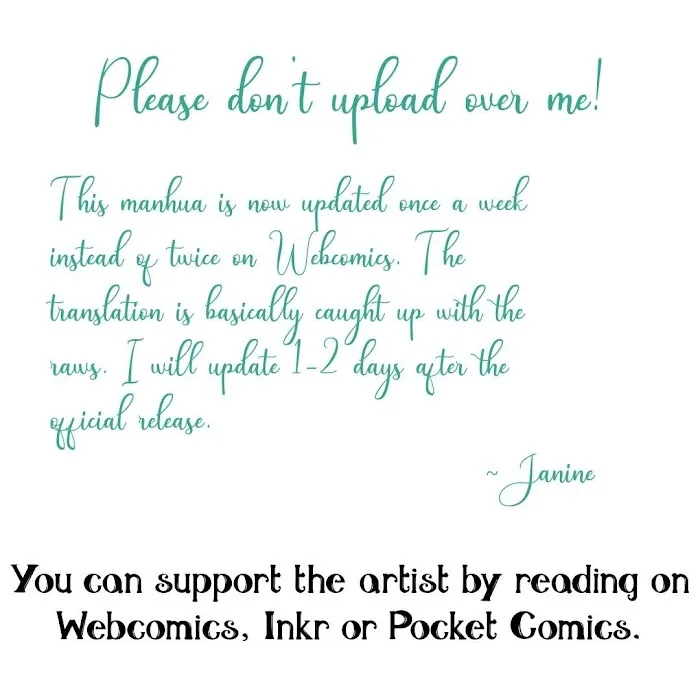 Please don't upload over me!
This manhua is now updated once a week
instead of twice on Webcomics. The
translation is basically caught up with the
raws. I will update 1-2 days after the
official release.
~ Janine
You can support the artist by reading on
Webcomics, Inkr or Pocket Comics.